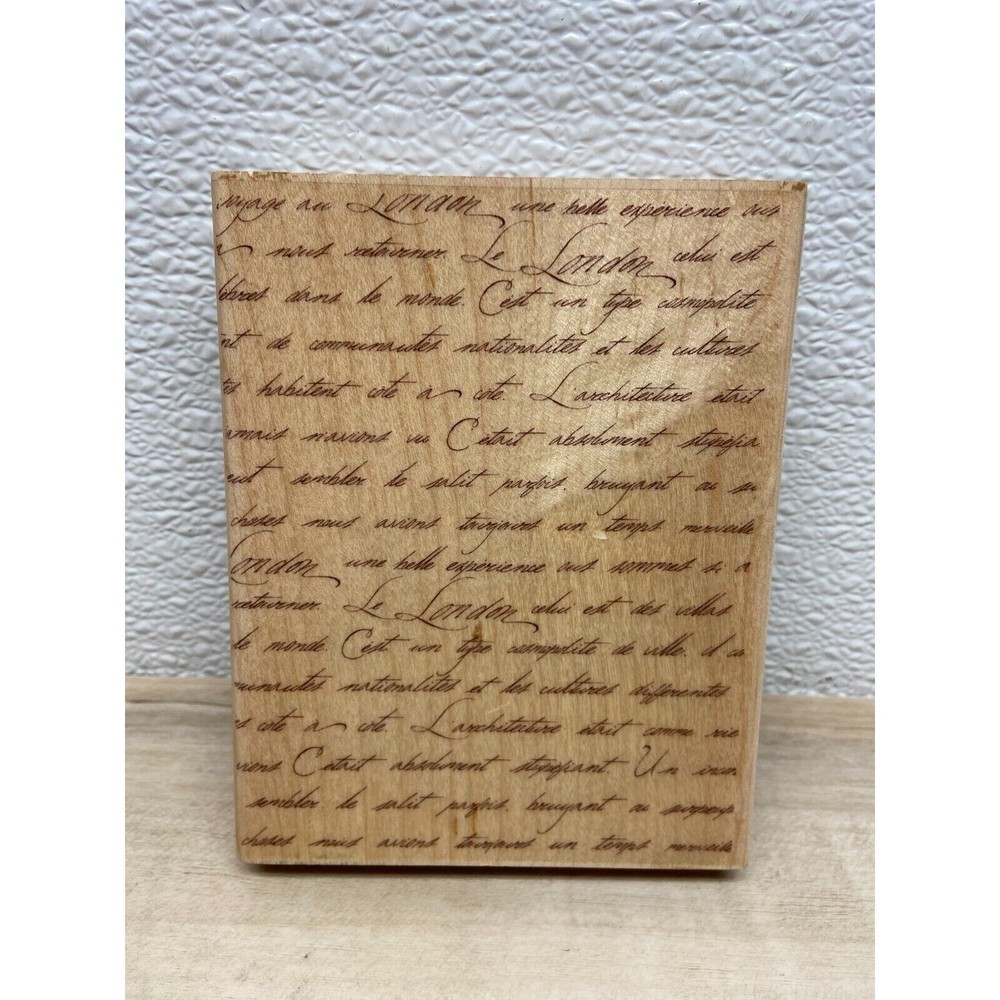 voyage au London une belle experience ous
a nous retourner. Le London celui est
lebres dans le monde. C'est un type cosmopolite
nt de communautes nationalités et les cultures
tes habitent cote a cote. L'architecture etait
amais n'avions vu C'etait absolument stupefia
eut sembler le salit parfois. bruyant ou su
choses nous avions toujours un temps merveille
London une belle experience ous sommes si a
retourner. Le London celui est des villas
le monde. C'est un type cosmopolite de ville. il co
munautes nationalités et les cultures differentes
es cote a cote. L'architecture etait comme rie
vions C'etait absolument stupefiant. Un incon
sembler le salit parfois. bruyant ou surpeup
choses nous avions toujours un temps merveille